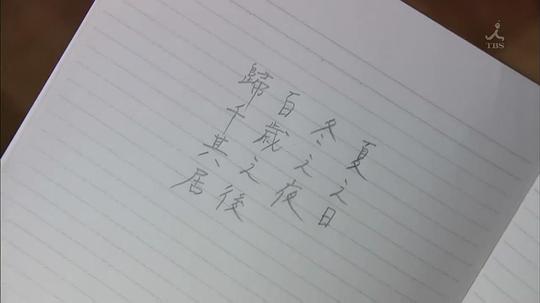 夏之日
冬之夜
百歳之後
歸千其居
TBS